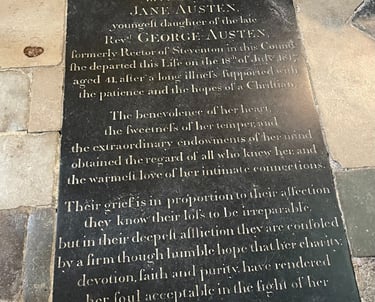 JANE AUSTEN,
youngest daughter of the late
Revd. GEORGE AUSTEN,
formerly Rector of Steventon in this County
she departed this Life on the 18th of July 1817,
aged 41, after a long illness supported with
the patience and the hopes of a Christian.
The benevolence of her heart,
the sweetness of her temper, and
the extraordinary endowments of her mind
obtained the regard of all who knew her, and
the warmest love of her intimate connections.
Their grief is in proportion to their affection
they know their loss to be irreparable,
but in their deepest affliction they are consoled
by a firm though humble hope that her charity,
devotion, faith and purity, have rendered
her soul acceptable in the sight of her